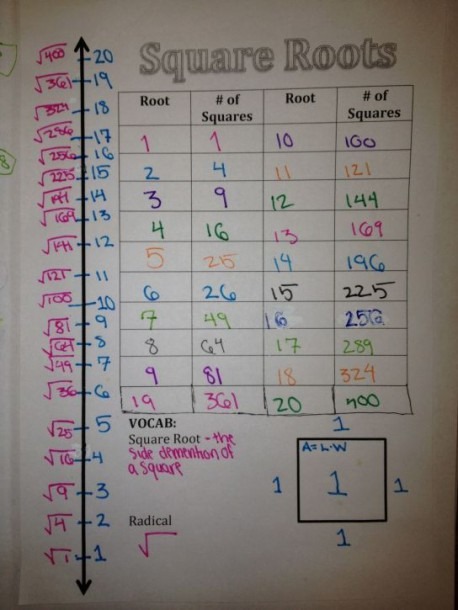 Square Roots
√400 20
√361 19
√324 18
√286 17
√256 16
√225 15
14
√169 13
√144 12
√121 11
√100 10
√81 9
√64 8
√49 7
√36 6
√25 5
√16 4
√9 3
√4 2
√1 1
Root # of Squares Root # of Squares
1 1 10 100
2 4 11 121
3 9 12 144
4 16 13 169
5 25 14 196
6 26 15 225
7 49 16 256
8 64 17 289
9 81 18 324
19 361 20 400
VOCAB:
Square Root - the
side demention of
a square
Radical
√
1
A=L·W
1 1 1
1
8